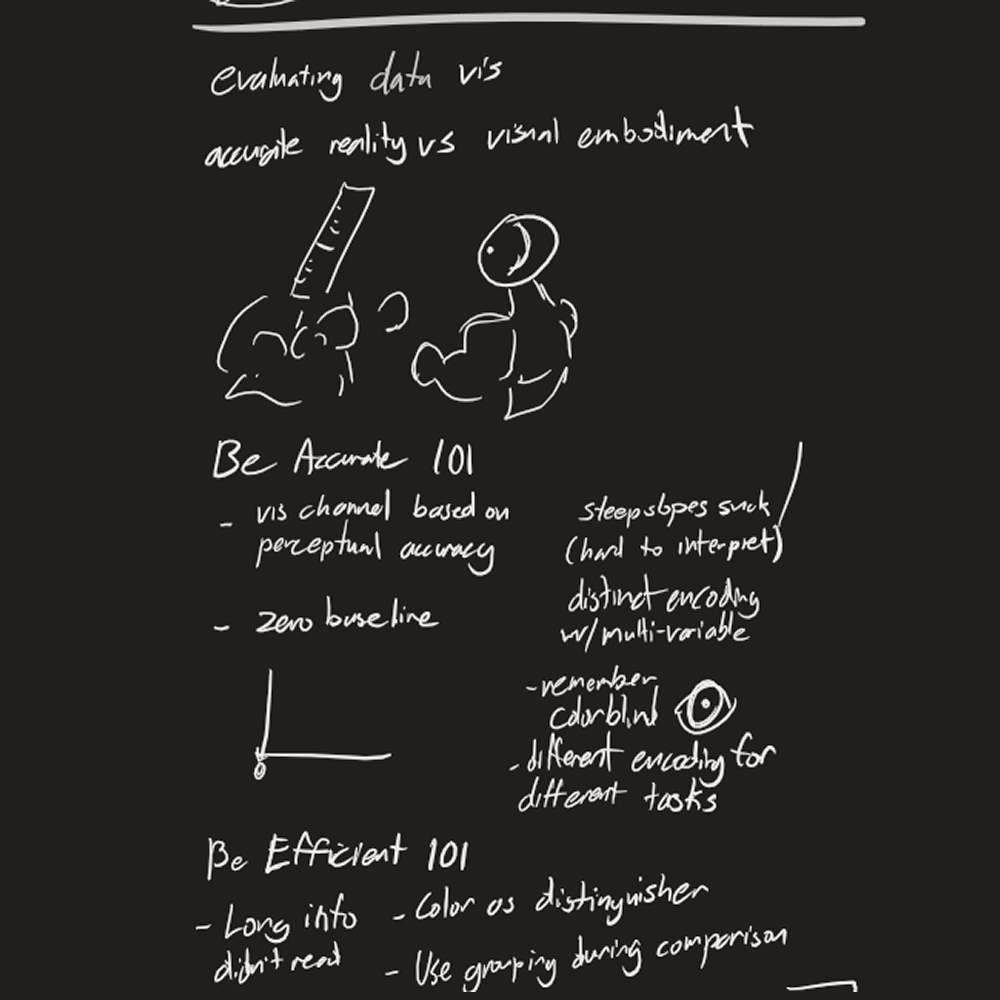 evaluating data vis
accurate reality vs visual embodiment
Be Accurate 101
- vis channel based on
perceptual accuracy
- zero baseline
0
steep slopes suck
(hard to interpret)
distinct encoding
w/multi-variable
- remember
colorblind
- different encoding for
different tasks
Be Efficient 101
- Long info
didn't read
- Color as distinguisher
- Use grouping during comparison